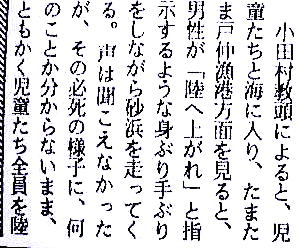 小田村教頭によると、児
童たちと海に入り、たまた
ま戸仲漁港方面を見ると、
男性が「陸へ上がれ」と指
示するような身ぶり手ぶり
をしながら砂浜を走ってく
る。声は聞こえなかった
が、その必死の様子に、何
のことか分からないまま、
ともかく児童たち全員を陸